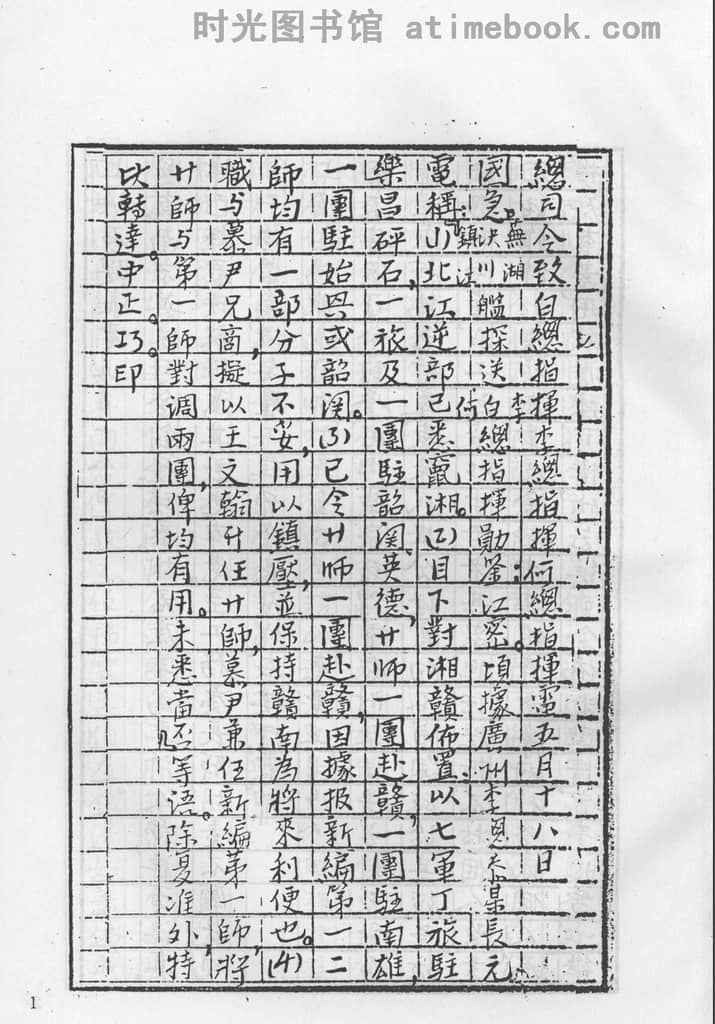 时光图书馆 atimebook.com
總司令致白總指揮李總指揮何總指揮電五月十八日
國急。蕪湖決川艦探送李白何總指揮勛鑒:江密。頃據廣州李參長元
電稱:(1)北江逆部已悉竄湘。(2)目下對湘贛佈置:以七軍丁旅駐
樂昌砰石,一旅及一團駐韶関英德,廿师一團赴贛,一團駐南雄,
一團駐始興或韶関。(3)已令廿师一團赴贛,因據报新編第一二
師均有一部分子不妥,用以鎮壓,並保持贛南為將來利便也。(4)
職与慕尹兄商,擬以王文翰升任廿師,慕尹兼任新編第一師,將
廿師与第一師對调兩團,俾均有用。未悉當否等语。除复准外,特
以轉達。中正。巧。印
1